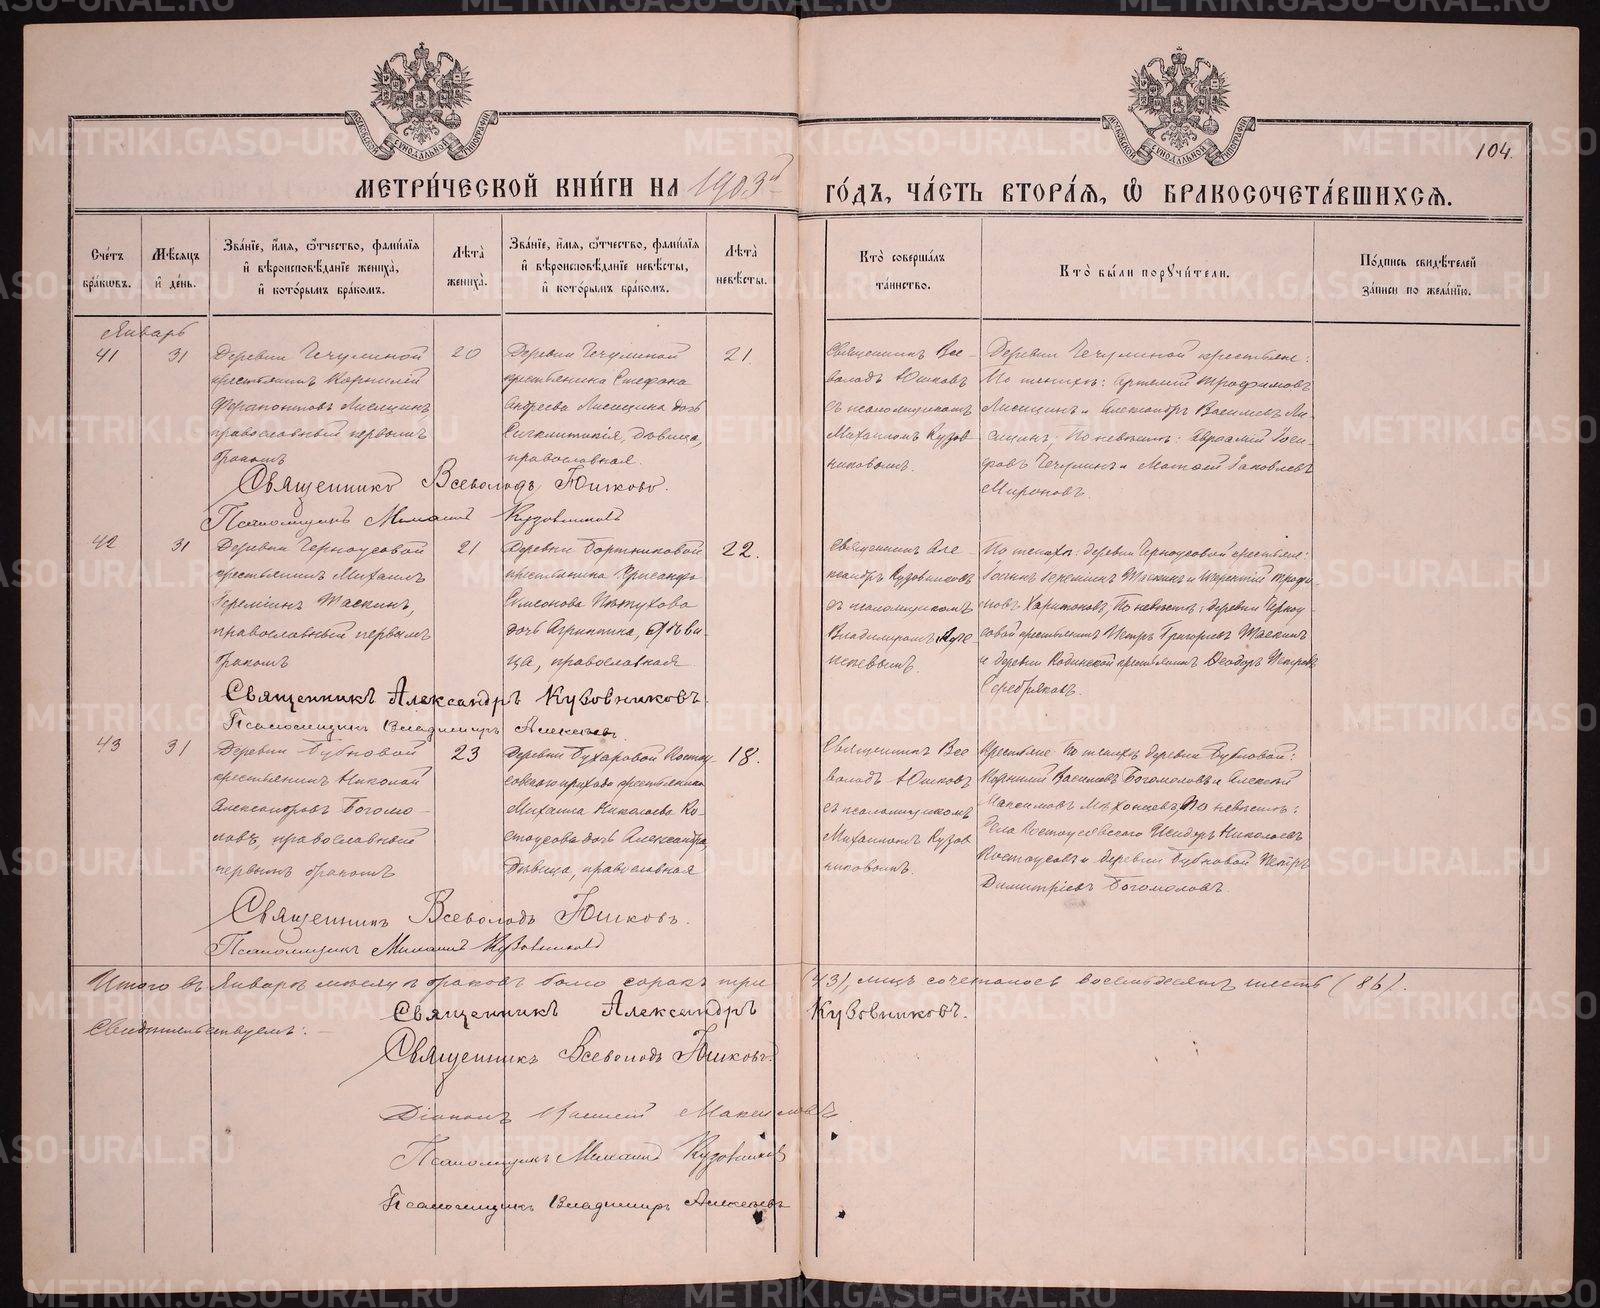 МОСКОВСКОЙ СѴНОДАЛЬНОЙ ТИПОГРАФІИ
МОСКОВСКОЙ СѴНОДАЛЬНОЙ ТИПОГРАФІИ
104.
МЕТРИ́ЧЕСКОЙ КНИ́ГИ НА 1903й ГО́ДЪ, ЧА́СТЬ ВТОРА́Я, Ѡ БРАКОСОЧЕТА́ВШИХСЯ.
Сче́тъ бра́ковъ.
Мѣ́сяцъ и҆ де́нь.
Зва́нїе, и҆́мя, ѻ҆́тчество, фами́лїя и҆ вѣроисповѣ́данїе жениха̀, и҆ кото́рымъ бра́комъ.
Лѣта̀ жениха̀.
Зва́нїе, и҆́мя, ѻ҆́тчество, фами́лїя и҆ вѣроисповѣ́данїе невѣ́сты, и҆ кото́рымъ бра́комъ.
Лѣта̀ невѣ́сты.
Кто̀ соверша́лъ та́инство.
Кто̀ бы́ли порꙋчи́тели.
По́дпись свидѣ́телей за́писи по жела́нїю.
Январь
41 31
Деревни Чечулиной
крестьянинъ Корнилій
Ферапонтовъ Лисицинъ
православный первымъ
бракомъ
20
Деревни Чечулиной
крестьянина Стефана
Андреева Лисицина дочь
Сигклитикія, дѣвица,
православная.
21
Священникъ Все-
володъ Юшковъ
съ псаломщикомъ
Михаиломъ Кузов-
никовымъ.
Деревни Чечулиной крестьяне:
По женихѣ: Артемій Трофимовъ
Лисицинъ и Александръ Васильевъ Ли-
сицинъ. По невѣстѣ: Авраамій Іоси-
фовъ Чечулинъ и Матѳей Іаковлевъ
Мироновъ.
Священникъ Всеволодъ Юшковъ.
Псаломщикъ Михаилъ Кузовниковъ
42 31
Деревни Черноусовой
крестьянинъ Михаилъ
Іереміинъ Шаскинъ,
православный первымъ
бракомъ
21
Деревни Бортниковой
крестьянина Хрисанфа
Симеонова Пѣтухова
дочь Агриппина, дѣви-
ца, православная
22.
Священникъ Але-
ксандръ Кузовниковъ
съ псаломщикомъ
Владимиромъ Але-
ксѣевымъ.
По женихѣ: деревни Черноусовой крестьяне:
Іоаннъ Іереміинъ Шаскинъ и Терентій Трофи-
мовъ Харитоновъ, По невѣстѣ: деревни Черноу-
совой крестьянинъ Петръ Григорьевъ Шаскинъ
и деревни Кодинской крестьянинъ Ѳеодоръ Петровъ
Серебряковъ.
Священникъ Александръ Кузовниковъ.
Псаломщикъ Владимиръ Алексѣевъ.
43 31
Деревни Бубновой
крестьянинъ Николай
Александровъ Богомо-
ловъ, православный
первымъ бракомъ
23
Деревни Бухаровой Костоу-
совскаго прихода крестьянина
Михаила Николаева Ко-
стоусова дочь Александра,
дѣвица, православная
18.
Священникъ Все-
володъ Юшковъ
съ псаломщикомъ
Михаиломъ Кузов-
никовымъ.
Крестьяне По женихѣ деревни Бубновой:
Корнилій Васильевъ Богомоловъ и Алексѣй
Максимовъ Мѣхонцевъ, По невѣстѣ:
Села Костоусовскаго Исидоръ Николаевъ
Костоусовъ и деревни Бубновой Петръ
Димитріевъ Богомоловъ.
Священникъ Всеволодъ Юшковъ.
Псаломщикъ Михаилъ Кузовниковъ
Итого въ Январѣ мѣсяцѣ браковъ было сорокъ три (43), лицъ сочеталось восемьдесятъ шесть (86).
Свидѣтельствуемъ:
Священникъ Александръ Кузовниковъ.
Священникъ Всеволодъ Юшковъ.
Діаконъ Максимовъ
Псаломщикъ Михаилъ Кузовниковъ
Псаломщикъ Владимиръ Алексѣевъ
METRIKI.GASO-URAL.RU